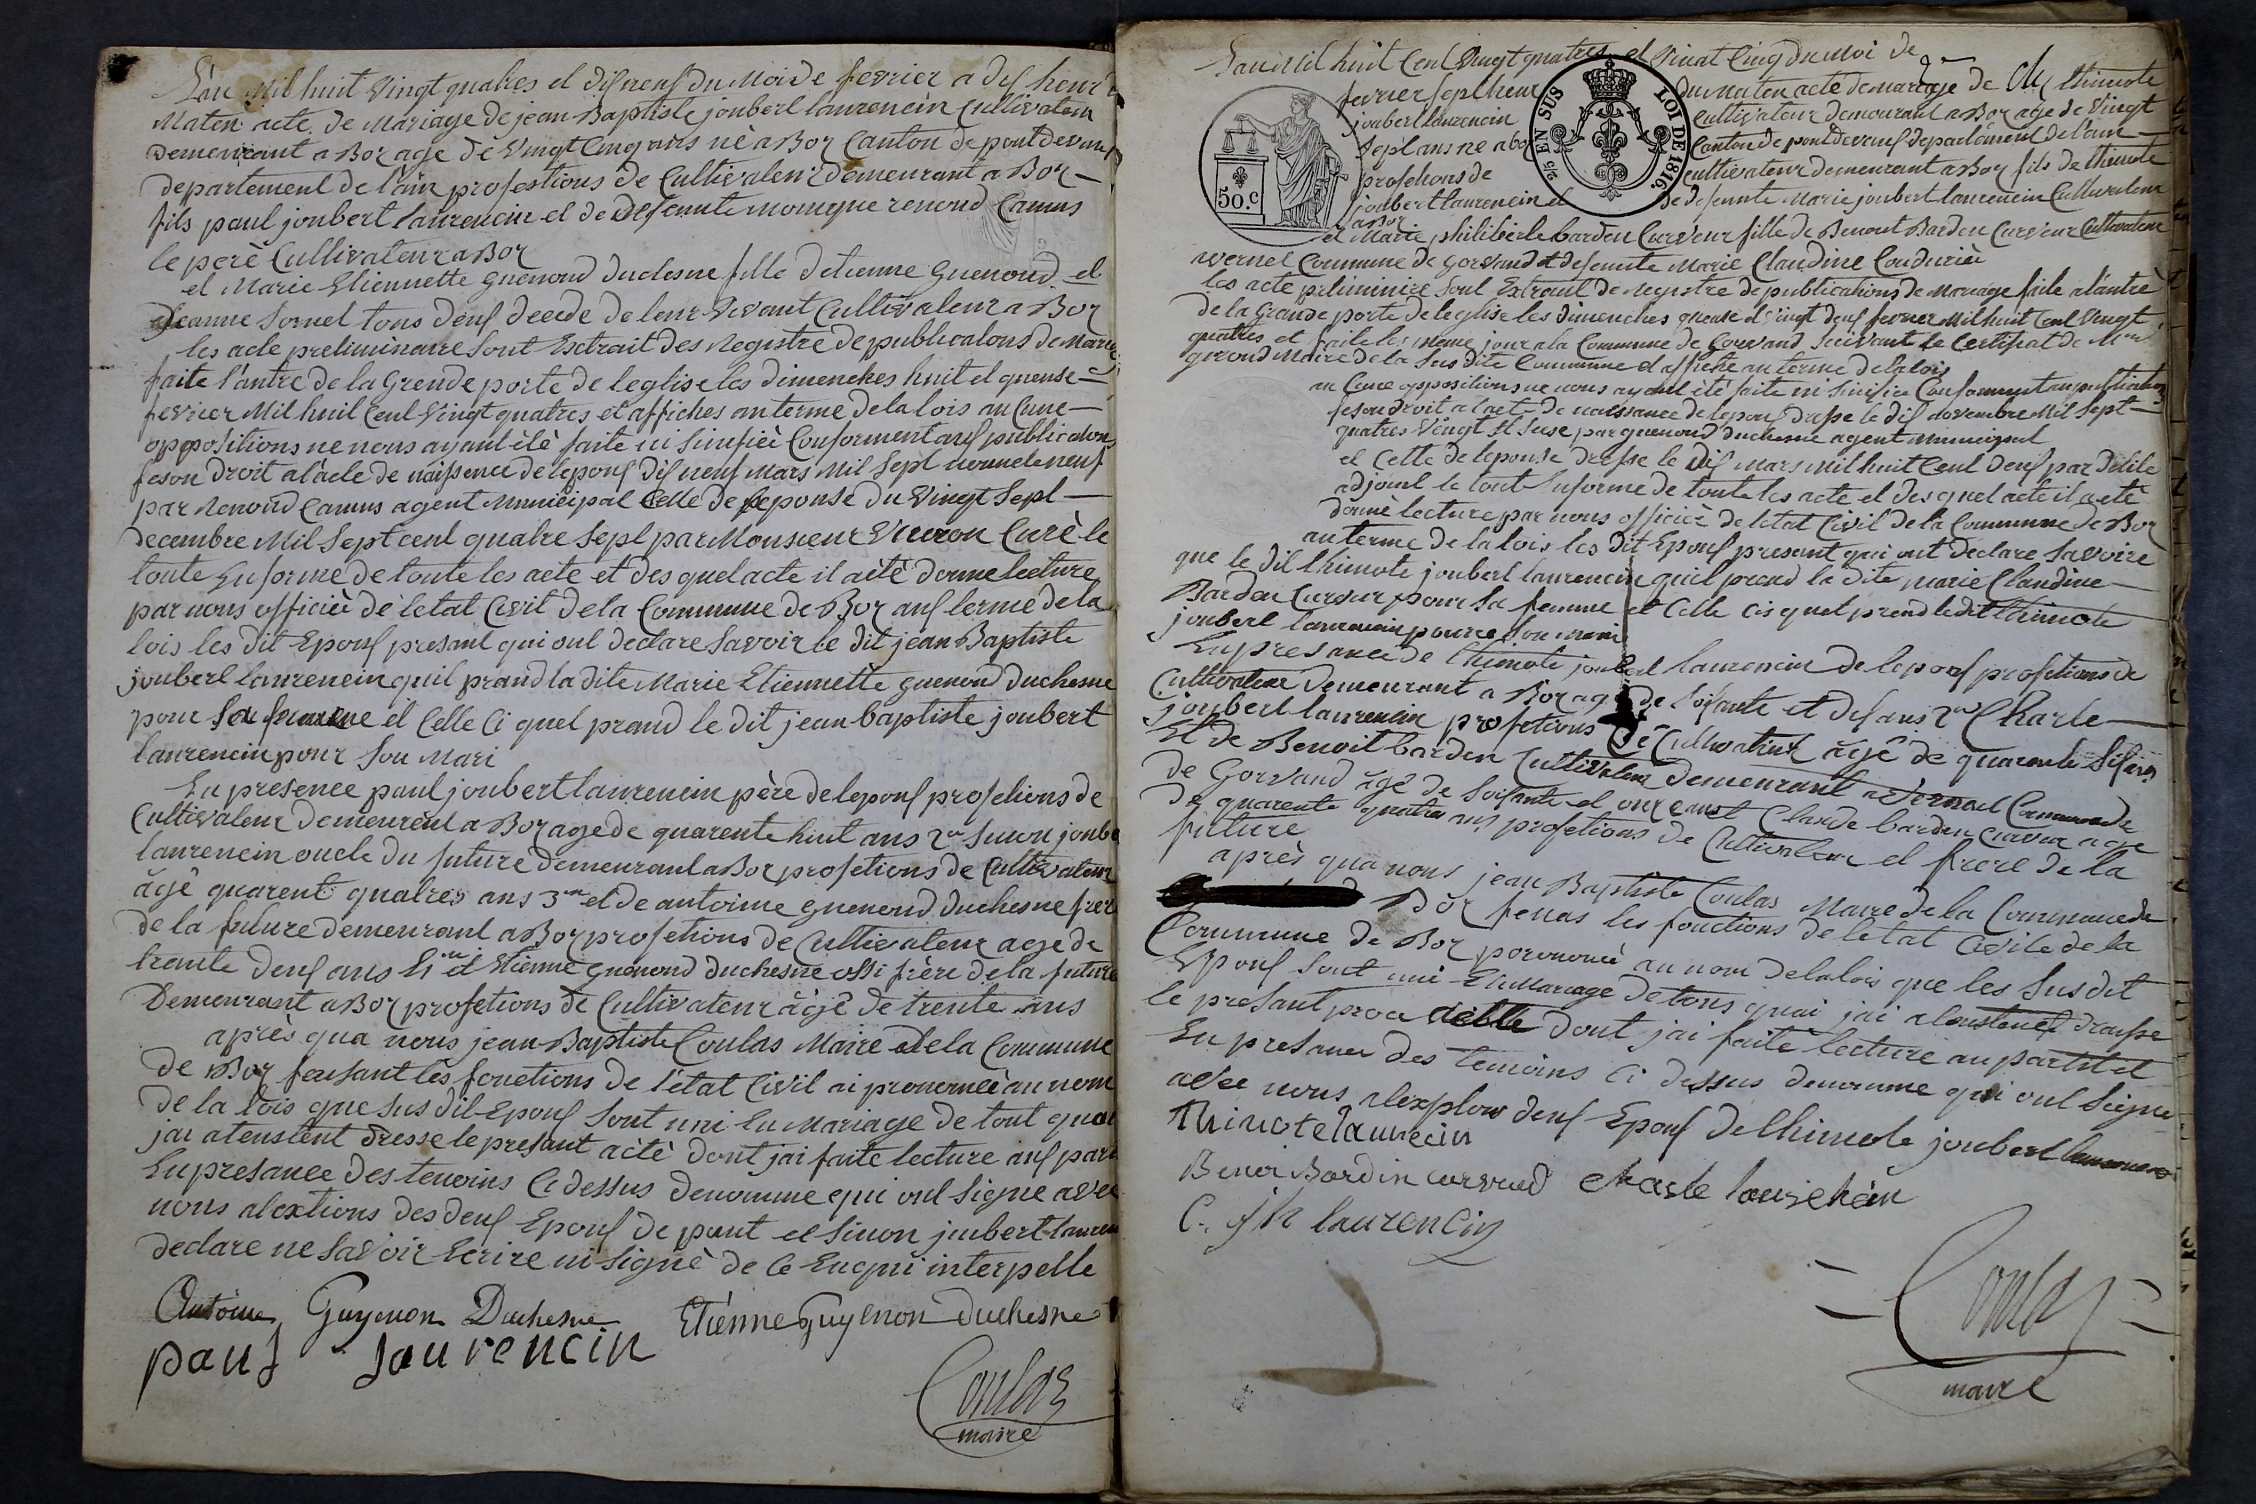 L'an Mil huit Vingt quatres et disneuf du Moi de fevrier a dis heur
Maten acte de Mariage de jean Baptiste joubert laurencin Cultivateur
demeurant a Boz age de Vingt Cinq ans né a Boz Canton de pont de
departement de l'ain profestions de Cultivateur demeurant a Boz
fils paul joubert laurencin et de defeunte monique renoud Camus
le peré Cultivateur a Boz
et Marie Etiennette guenoud duchesne fille detienne guenoud et
jeanne Sornet tous deuf decede de leur Vivant Cultivateur a Boz
les acte preliminaire Sont Extrait des Registre de publications de
faite l'antre de la Grende porte de leglise les dimenches huit et quense
fevrier Mil huit Cent Vingt quatres et affiches au terme de la lois au Cune
oppositions ne nous ayant été faite ni Sinifièe Conforment aus publications
feson droit al'acte de naissence de lepouf dis neuf Mars Mil Sept
par Renoud Camus agent Municipal Celle de lepouse du Vingt Sept
decembre Mil Sept cent quatre Sept par Monsieur Curé le
toute Enforme de toute les acte et des quel acte il a été donne lecture
par nous officié de létat Civil de la Commune de Boz aus terme de la
lois les dit Epouf presant qui ont declare Savoir le dit jean Baptiste
joubert laurencin quil prand la dite Marie Etiennette guenoud Duchesne
pour Sa femme et Celle Ci quel prand le dit jean baptiste joubert
laurencin pour Son Mari
En presence paul joubert laurencin père de lepouf profetions de
Cultivateur demeurent a Boz age de quarente huit ans 2 Simon
laurencin oncle du future demeurant a Boz profetions de Cultivateur
âgé quarent quatres ans 3 et de antoine guenoud duchesne
de la future demeurant a Boz profetions de Cultivateur age de
trente deuf ans et Etienne guenoud duchesne ossi frère de la future
Demeurant a Boz profetions de Cultivateur âgé de trente ans
après qua nous jean Baptiste Coulas Maire de la Commune
de Boz fesant les fonctions de l'état Civil ai prononcèe au nom
de la lois que Sus dit Epouf Sont uni En Mariage de tout
jai atenstent dresse le presant acté dont jai faite lecture aus
En presance des temoins Ci dessus denomme qui ont Signe
nous alextions des deuf Epouf de et Simon joubert
declare ne Savoir Ecrire ni Signé de Ce interpelle
Antoine Guyenon Duchesne Etienne Guyenon duchesne
paul Laurencin
Coulas
maire
L'an Mil huit Cent Vingt quatres et Vinat Cinq du Moi de
fevrier Sept heur du maten acte de mariage de thimote
joubert laurencin Cultivateur demeurant a Boz age de Vingt
Sept ans né a boz Canton de pont departement de l'ain
profetions de cultivateur demeurant a Boz fils de thimote
joubert laurencin et de defeunte Marie joubert laurencin Cultivateur
a Boz
et Marie philiberte barden Curveur fille de Benout Barden Curveur Cultivateur
50.c
2/5 EN SUS
LOI DE 1816.
vernet Commune de gorvand et defeunte Marie Claudine
les acte preliminiré Sont Extrait de registre de publications de Mariage faite a lantré
de la Grande porte de leglise les dimenches quense et Vingt deuf fevrier Mil huit Cent Vingt
quatres et faite les même jour a la Commune de gorvand Suivant le Certificat de
giroud Maire de la Sus dite Commune et affiche au terme de la lois
au Cune oppositions ne nous ayant été faite ni Sinifiée Conforment au publications
feson droit al'acte de naissance de lepouf le dis novembre Mil Sept
quatres Vingt Seise par guenoud duchesne agent Municipal
et Celle de lepouse dresse le Dis Mars Mil huit Cent deuf par
adjoint le toute Enforme de toute les acte et des quel acte il a été
donné lecture par nous officié de létat Civil de la Commune de Boz
au terme de la lois les Dit Epouf presant qui ont declare Savoire
que le dit thimote joubert laurencin quil prend la dite marie Claudine
Barden Curveur pour Sa femme et Celle ci quel prend le dit thimote
joubert laurencin pour Son Mari
En presance de thimote joubert laurencin de lepouf profetions de
Cultivateur demeurant a Boz age de Soisante et dis ans 2 Charle
joubert laurencin profetions de Cultivateur âgé de quarente
Et de Benoit barden Cultivateur demeurant a Commune de
de Gorvand âgé de Soisante et onze ans et Claude barden curveur age
de quarente quatre ans profetions de Cultivateur et frere de la
future
après qua nous jean Baptiste Coulas Maire de la Commune de
Boz fesans les fonctions de létat Civile de la
Commune de Boz prononcé au nom de la lois que les Sus dit
Epouf Sont uni En Mariage de tous quoi jai
le presant dont jai faite lecture au et
En presance des temoins Ci dessus denomme qui ont Signe
avec nous deuf Epouf de thimote joubert laurencin
Thimote laurecin
Benoi Bardin curveud charle laurenein
C. laurencin
Coulas
maire